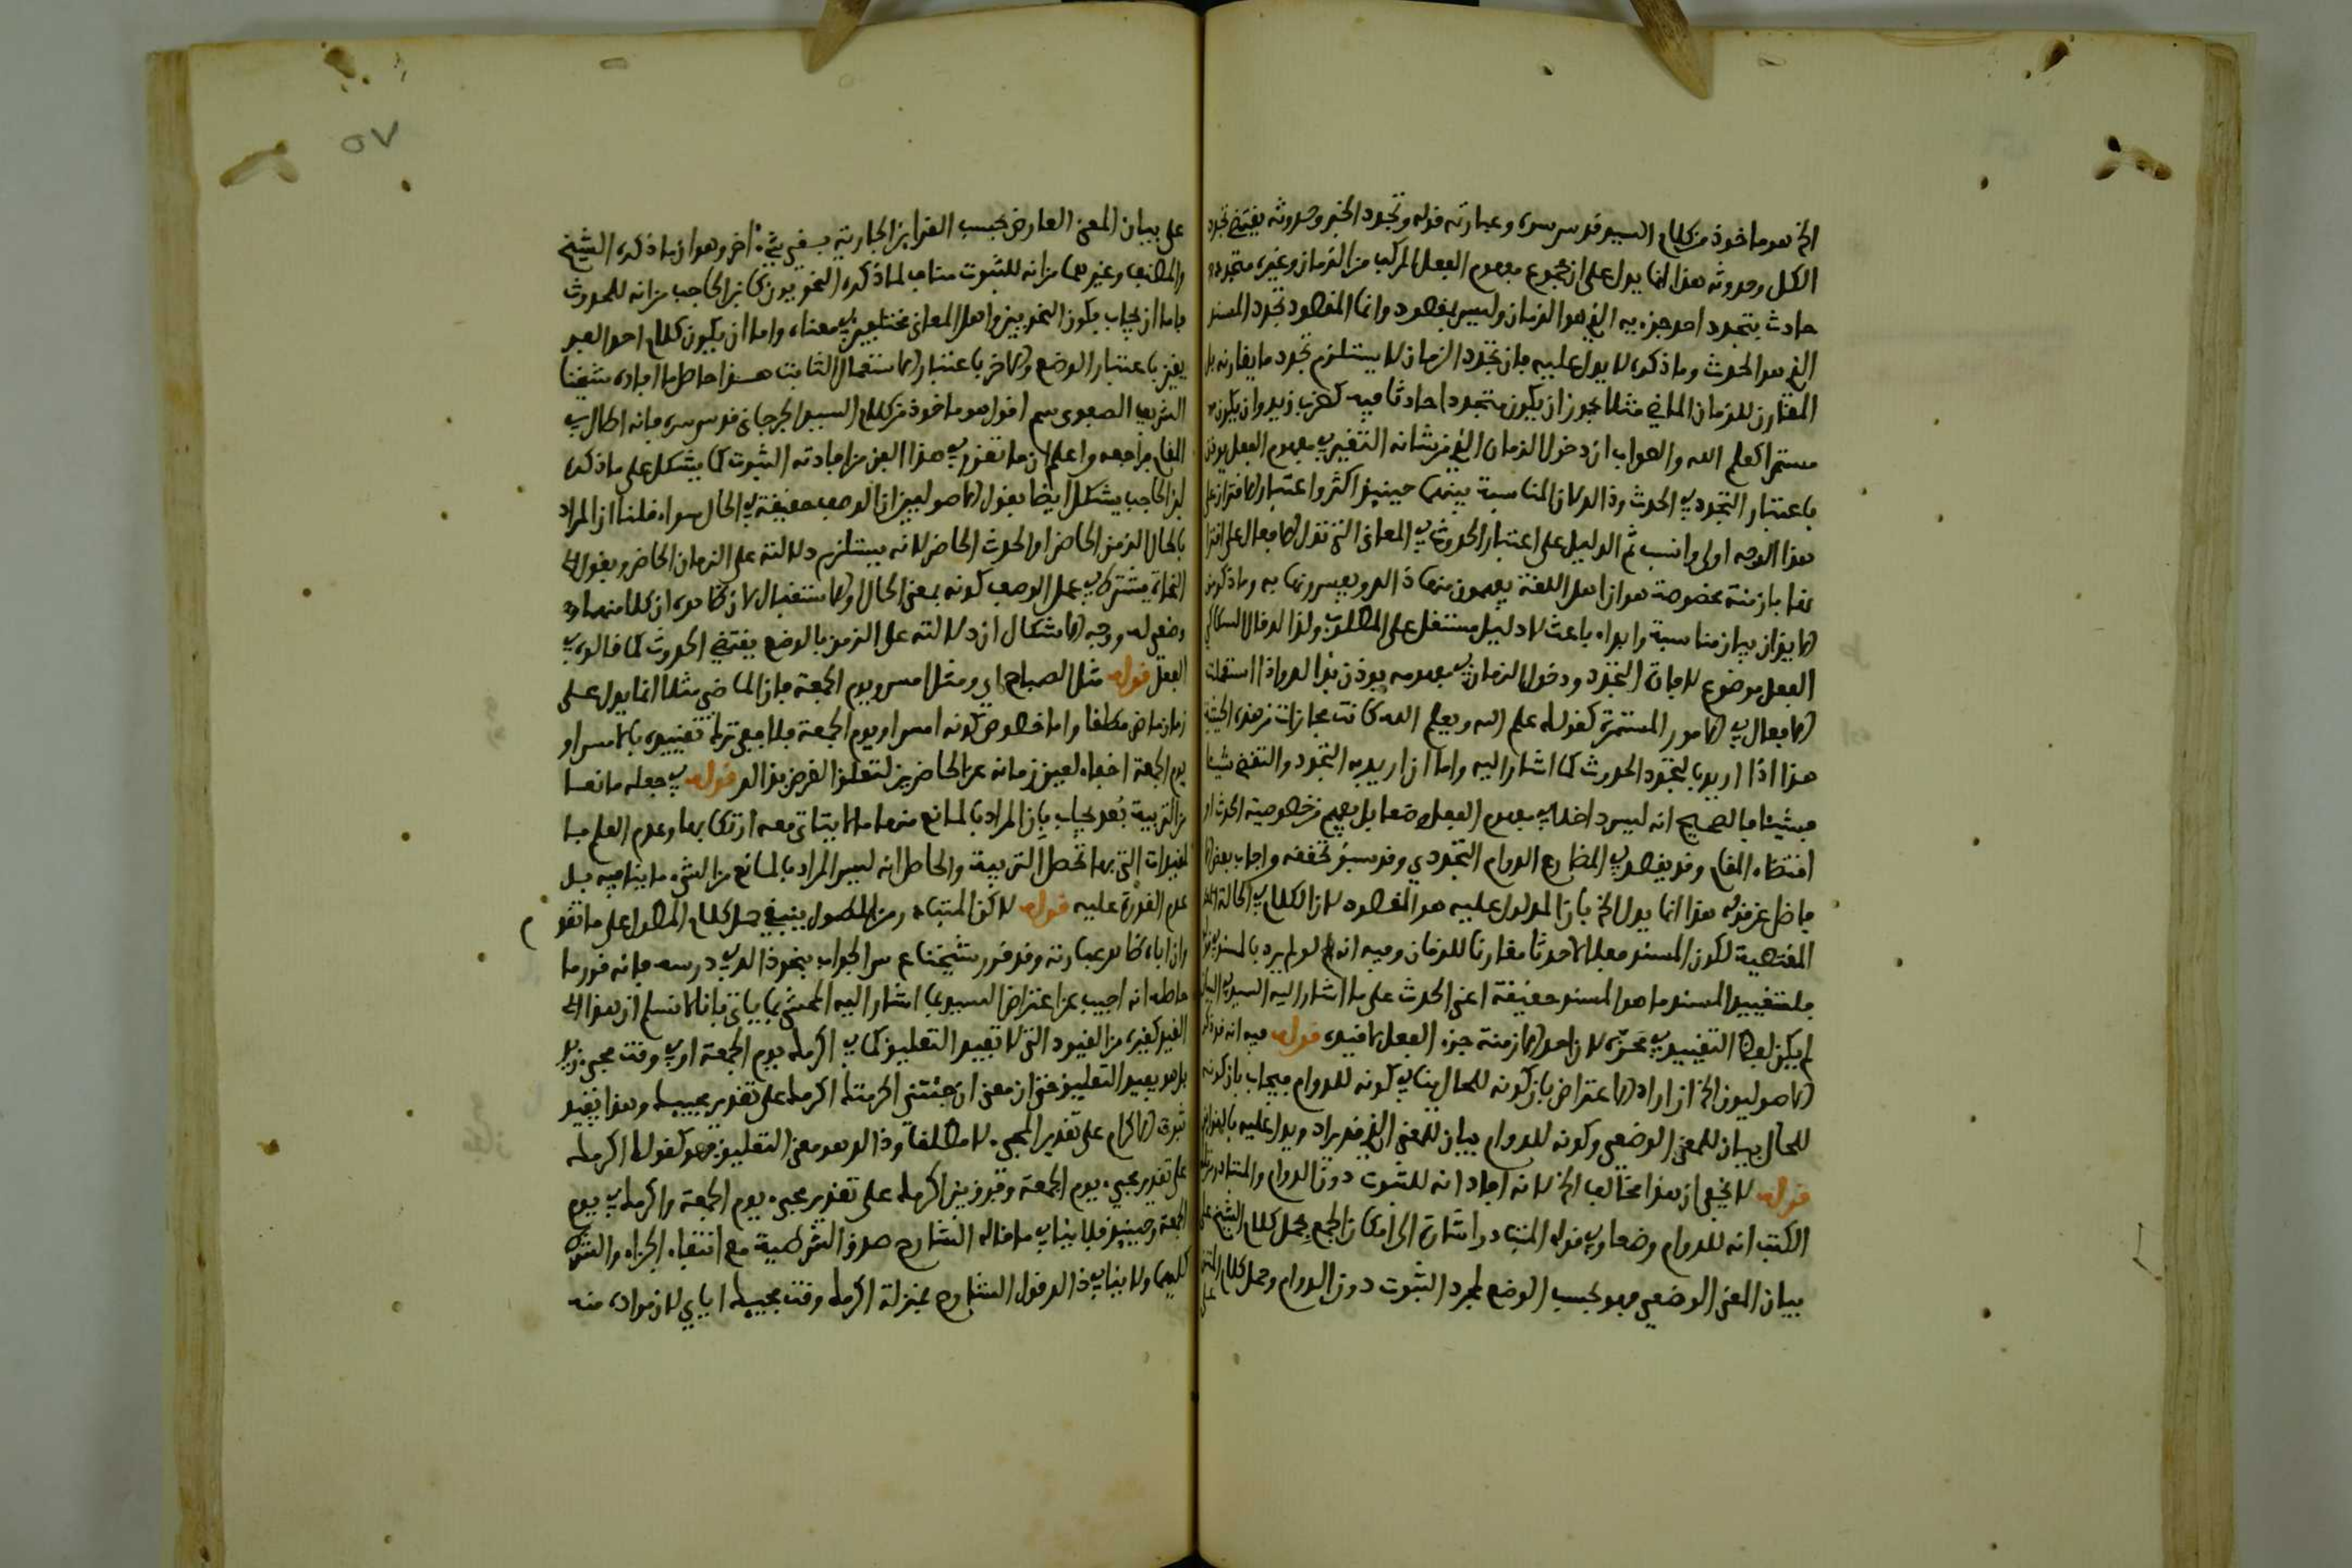 الخ هو ماخوذ من كلام السيد قدس سره وعبارته قوله وتجدد الخبر وحدوثه يقتضي تجدد
الكل وحدوثه هذا انما يدل على ان مجموع مفهوم الفعل المركب من الزمان وغيره متجدد
حادث بتجدد احد جزءيه الذي هو الزمان وليس بمقصود وانما المقصود تجدد المسند
الذي هو الحدث وما ذكره لا يدل عليه فان تجدد الزمان لا يستلزم تجدد ما يقارنه بل
المقارن للزمان الماضي مثلا يجوز ان يكون متجددا حادثا فيه كضرب زيد وان يكون
مستمرا كعلم الله والصواب ان دخول الزمان الذي من شانه التغير في مفهوم الفعل يوذن
باعتبار التجدد في الحدث وذالك لان المناسبة بينهما حينئذ اكثر واعتبار الاقتران على
هذا الوجه اولى وانسب ثم الدليل على اعتبار الحدوث في المعاني التي تدل الافعال على اقترا
نها بازمنة مخصوصة هو ان اهل اللغة يفهمون منها ذالك ويفسرونها به وما ذكر من
الايذان بيان مناسبة وابداء باعث لا دليل مستقل على المطلوب ولذالك قال السكاكي
الفعل موضوع لافادة التجدد ودخول الزمان في مفهومه يوذن بذالك واذا استعملت
الافعال في الامور المستمرة كقولك علم الله ويعلم الله كانت مجازات من هذه الحيثية
هذا اذا اريد بالتجدد الحدوث كما اشار اليه واما ان اريد به التجدد والتقضي شيئا
فشيئا فالصحيح انه ليس داخلا في مفهوم الفعل وضعا بل يفهم من خصوصية الحدث او
اقتضاء المقام وقد يقصد في المضارع الدوام التجددي وقد سبق تحققه واجاب بعض الا
فاضل عن قوله هذا انما يدل الخ بان المدلول عليه هو المقصود لان الكلام في الحالة
المقتضية لكون المسند فعلا لا حدثا مقارنا للزمان وفيه انه لو لم يرد بالمسند
فلتقييد المسند ما هو المسند حقيقة اعني الحدث على ما اشار اليه السيد في البيان
لم يكن لهذا التقييد معنى لان احد الازمنة جزء الفعل لا قيده قوله فيه انه قد ذكر
الاصوليون الخ ان اراد الاعتراض بان كونه للحال ينافي كونه للدوام فيجاب بان كونه
للحال بيان للمعنى الوضعي وكونه للدوام بيان للمعنى الذي قد يراد ويدل عليه بالقرائن
قوله لا يخفى ان هذا مخالف الخ لانه افاد انه للثبوت دون الدوام والمتبادر من
الكتب انه للدوام وضعا وفي قوله المتبادر اشارة الى امكان الجمع بحمل كلام الشيخ على
بيان المعنى الوضعي وهو بحسب الوضع لمجرد الثبوت دون الدوام وحمل كلام المتن
على
٥٧
على بيان المعنى العارض بحسب القراين الخارجية بقي شيء اخر وهو ان ما ذكره الشيخ
والمصنف وغيرهما من انه للثبوت مناف لما ذكره النحويون كابن الحاجب من انه للحدوث
فاما ان يجاب بكون النحويين واهل المعاني مختلفين في معناه واما ان يكون كلام احد الفر
يقين باعتبار الوضع والاخر باعتبار الاستعمال الثابت هذا حاصل ما افاده شيخنا
الشريف الصفوي سم اقول هو ماخوذ من كلام السيد الجرجاني قدس سره فانه اطال في
المقام فراجعه واعلم ان ما تقرر في هذا الفن من افادته الثبوت كما يشكل على ما ذكره
ابن الحاجب يشكل ايضا بقول الاصوليين ان الوصف حقيقة في الحال سواء قلنا ان المراد
بالحال الزمن الحاضر او الحدث الحاضر لانه يستلزم دلالته على الزمان الحاضر وبقول
النحاة يشترط في عمل الوصف كونه بمعنى الحال او الاستقبال لان ظاهره ان كلا منهما
وضعي له ووجه الاشكال ان دلالته على الزمن بالوضع يقتضي الحدوث كما قالوه في
الفعل قوله مثل الصباح اي ومثل امس ويوم الجمعة فان الماضي مثلا انما يدل على
زمان ماض مطلقا واما خصوص كونه امس او يوم الجمعة فلا ففي ترك تقييده بالامس او
يوم الجمعة اخفاء لعين زمانه عن الحاضرين لتعلق الغرض بذالك قوله في جعله مانعا
من التربية بُعد يجاب بان المراد بالمانع منها ما لا يتاتى معه ارتكابها وعدم العلم بها
لقيدات التي بها تحصل التربية والحاصل انه ليس المراد بالمانع من الشيء ما ينافيه بل
عدم القدرة عليه قوله لاكن المتبادر من المطول ينبغي حمل كلام المطول على ما تقدم
وان اباه ظاهر عبارته وقد قرر شيخنا ع س الجواب بنحو ذالك في درسه فانه قرر ما
حاصله انه اجيب عن اعتراض السيد بما اشار اليه المحشي بما ياتي بانا لا نسلم ان هذا
القيد كغيره من القيود التي لا تفيد التعليق كما في اكرمك يوم الجمعة او في وقت مجيء زيد
بل هو يفيد التعليق حتى ان معنى ان جئتني اكرمتك اكرمك على تقدير مجيئك وهذا يفيد
ثبوت الاكرام على تقدير المجيء لا مطلقا وذالك هو معنى التعليق فهو كقولك اكرمك
على تقدير مجيء يوم الجمعة وفرق بين اكرمك على تقدير مجيء يوم الجمعة واكرمك في يوم
الجمعة وحينئذ فلا ينافي ما قاله الشارح صدق الشرطية مع انتفاء الجزاء والشرط
كليهما ولا ينافي ذالك قول الشارح بمنزلة اكرمك وقت مجيئك اياي لان مراده منه